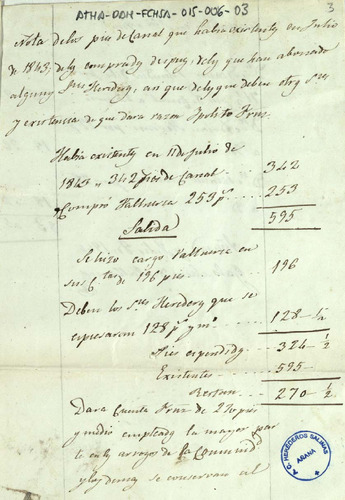 ATHA-DAH-FCHSA-015-006-03
3
Nota de los pies de Canal que habia existentes en Julio
de 1843, de los comprados despues, de los que han abonado
algunos Sres Herederos, asi que de los que deben otros Sres
y existencia de que dara razon Ipolito Fruz.
Habia existentes en 11 de Julio de
1843 " 342 Pies de Canal 342
Compró Valluerca 253 ps. 253
595
Salida
Se hizo cargo Valluerca en
sus Ctas de 196 pies 196
Deben los Sres Herederos que se
espresaron 128 ps y mo. 128 - ½
Pies espendidos 324 - ½
Existentes 595 -
Restan 270 - ½
Dara Cuenta Fruz de 270 pies
y medio empleados la mayor parte
en los arroyos de la Comunidad
y los demas se conservan al
A.C. HEREDEROS SALINAS
ARANA